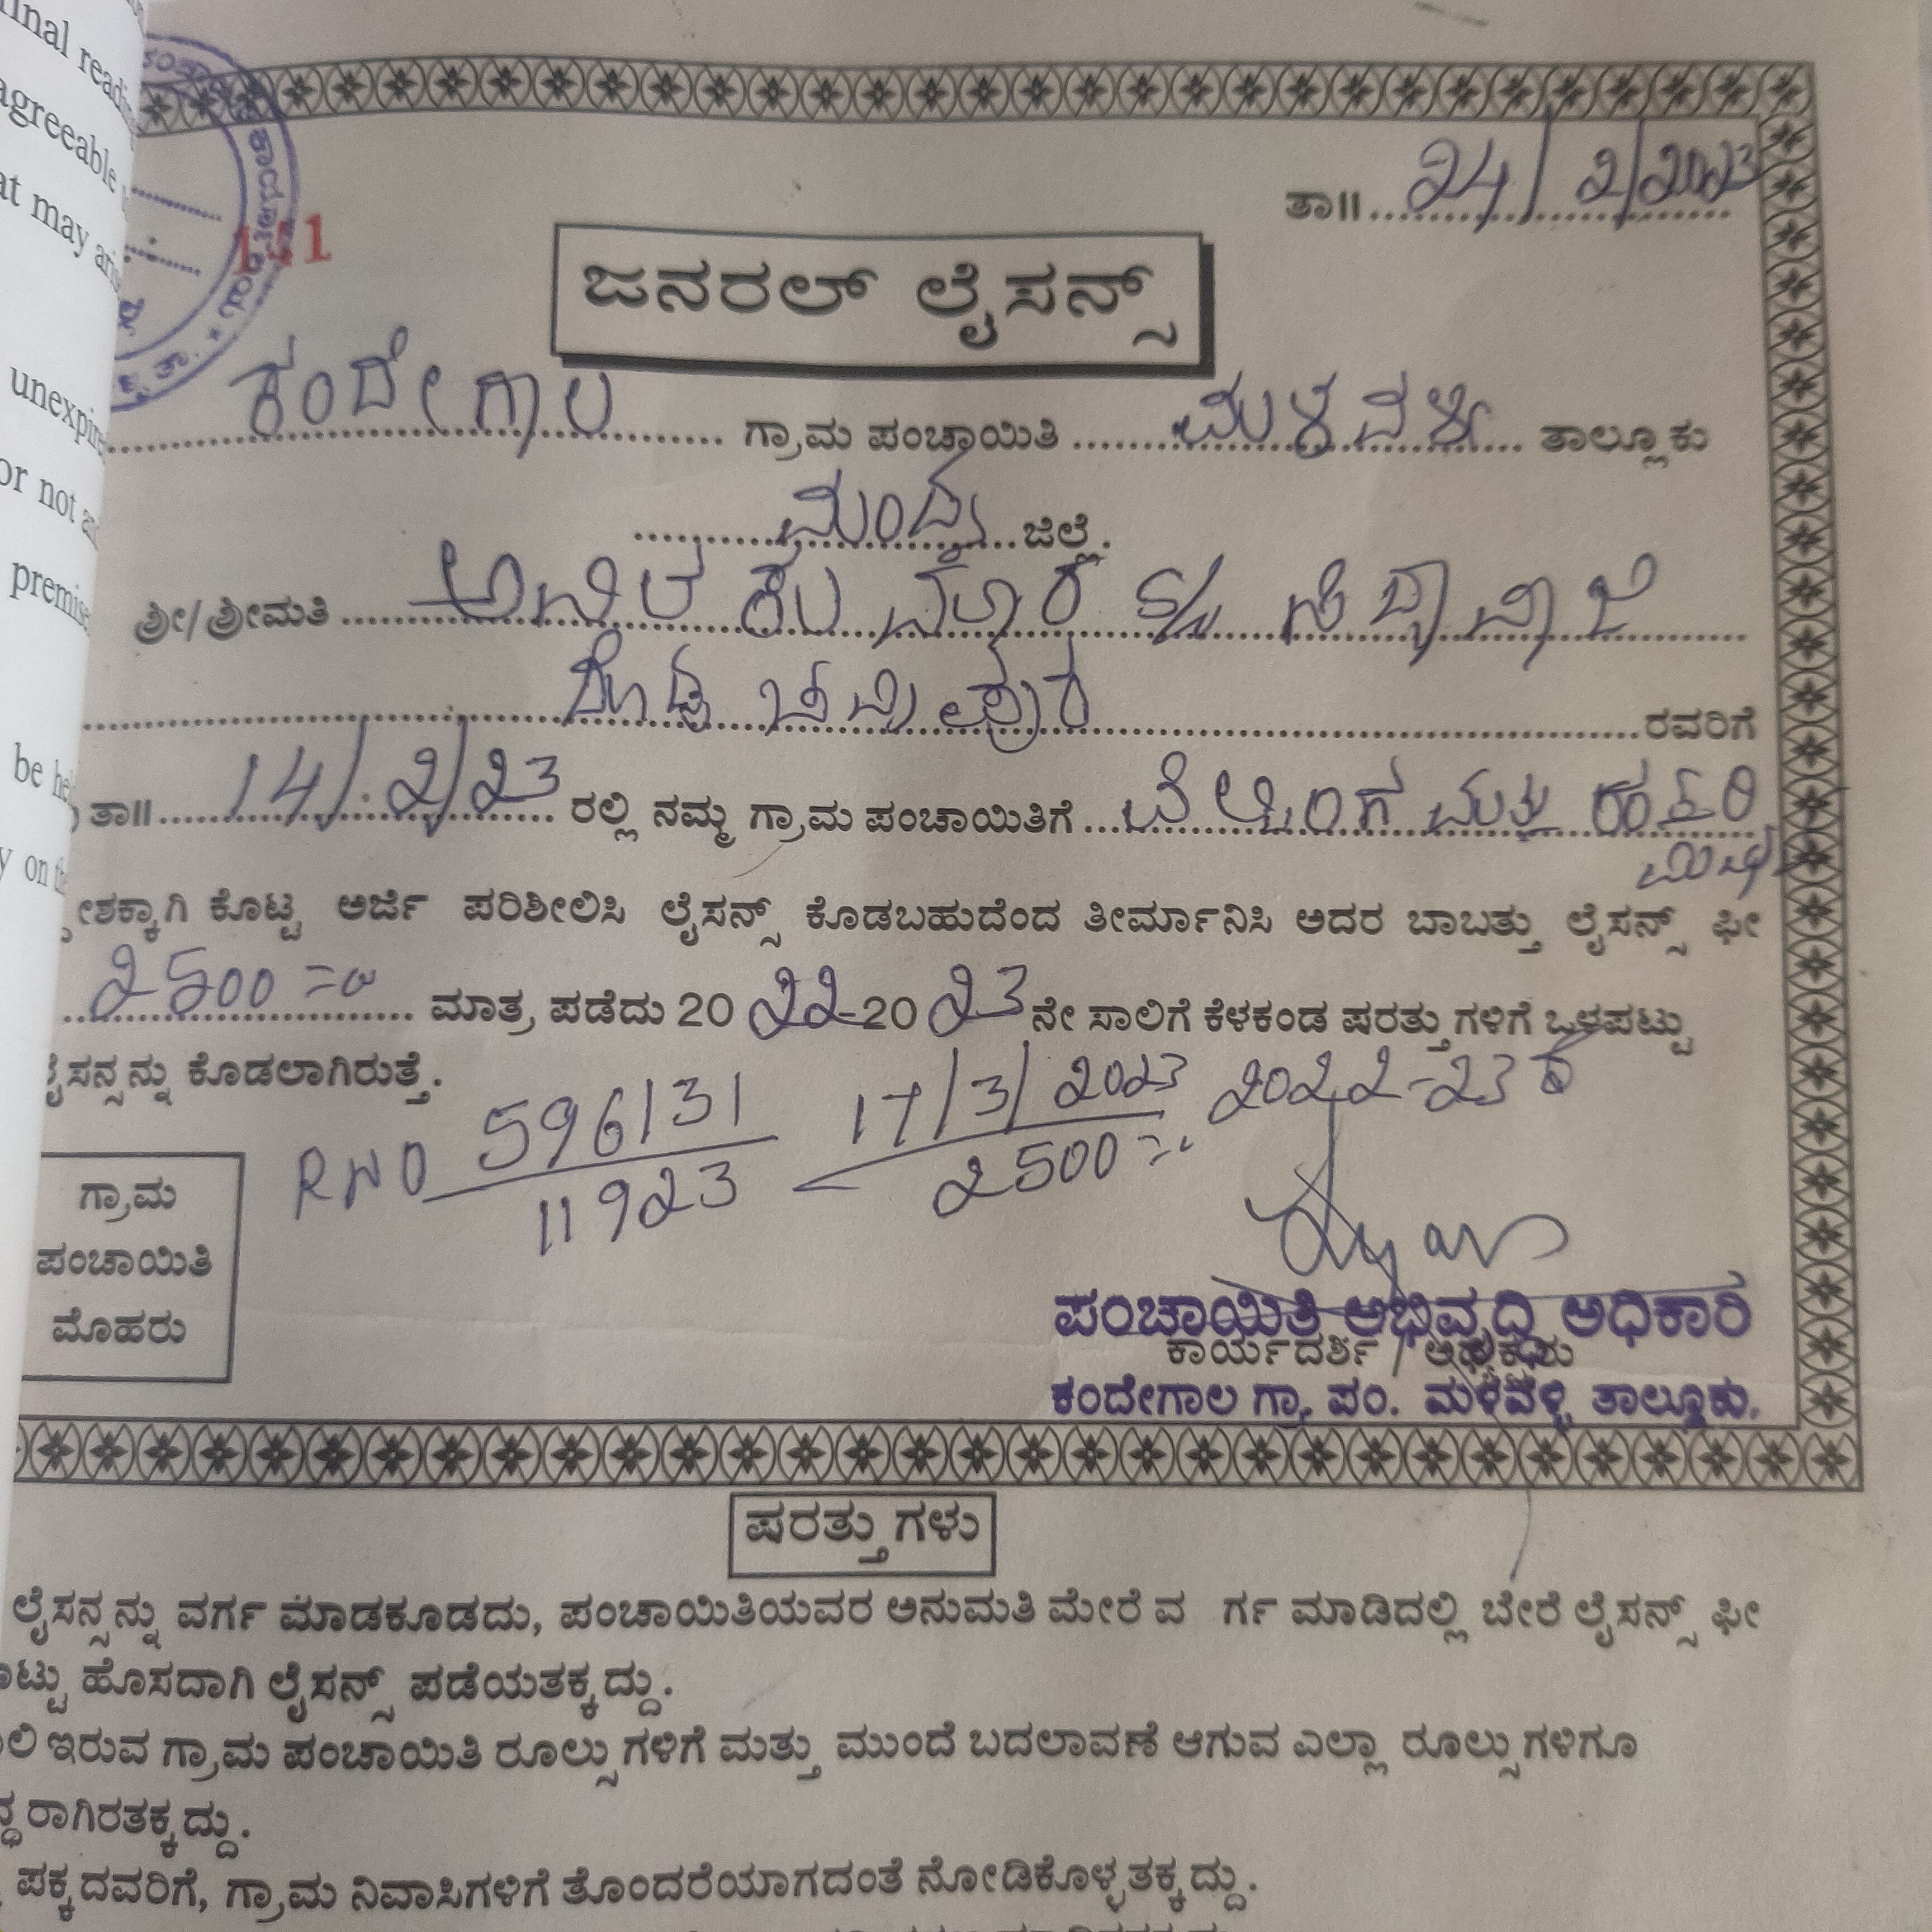 final
agreeable
at may
unexpire
or not
premise
be
y on the
ತಾ॥ 24/2/2023
ಜನರಲ್ ಲೈಸನ್ಸ್
ಕಂದೇಗಾಲ ಗ್ರಾಮ ಪಂಚಾಯಿತಿ ಮಳವಳ್ಳಿ ತಾಲ್ಲೂಕು
ಮಂಡ್ಯ ಜಿಲ್ಲೆ.
ಶ್ರೀ/ಶ್ರೀಮತಿ ಕುಮಾರ S/o
ರವರಿಗೆ
ತಾ॥ 14/2/23 ರಲ್ಲಿ ನಮ್ಮ ಗ್ರಾಮ ಪಂಚಾಯಿತಿಗೆ ಮತ್ತು
ೇಶಕ್ಕಾಗಿ ಕೊಟ್ಟ ಅರ್ಜಿ ಪರಿಶೀಲಿಸಿ ಲೈಸನ್ಸ್ ಕೊಡಬಹುದೆಂದ ತೀರ್ಮಾನಿಸಿ ಅದರ ಬಾಬತ್ತು ಲೈಸನ್ಸ್ ಫೀ
2500=00 ಮಾತ್ರ ಪಡೆದು 2022-2023 ನೇ ಸಾಲಿಗೆ ಕೆಳಕಂಡ ಷರತ್ತುಗಳಿಗೆ ಒಳಪಟ್ಟು
ಲೈಸನ್ಸನ್ನು ಕೊಡಲಾಗಿರುತ್ತೆ.
RNO 596131 17/3/2023 2022-23
11923 2500
ಗ್ರಾಮ
ಪಂಚಾಯಿತಿ
ಮೊಹರು
ಪಂಚಾಯಿತಿ ಅಭಿವೃದ್ಧಿ ಅಧಿಕಾರಿ
ಕಾರ್ಯದರ್ಶಿ / ಅಧ್ಯಕ್ಷರು
ಕಂದೇಗಾಲ ಗ್ರಾ. ಪಂ. ಮಳವಳ್ಳಿ ತಾಲ್ಲೂಕು.
ಷರತ್ತುಗಳು
ಲೈಸನ್ಸನ್ನು ವರ್ಗ ಮಾಡಕೂಡದು, ಪಂಚಾಯಿತಿಯವರ ಅನುಮತಿ ಮೇರೆ ವ ರ್ಗ ಮಾಡಿದಲ್ಲಿ ಬೇರೆ ಲೈಸನ್ಸ್ ಫೀ
ಟ್ಟು ಹೊಸದಾಗಿ ಲೈಸನ್ಸ್ ಪಡೆಯತಕ್ಕದ್ದು.
ಲಿ ಇರುವ ಗ್ರಾಮ ಪಂಚಾಯಿತಿ ರೂಲ್ಸುಗಳಿಗೆ ಮತ್ತು ಮುಂದೆ ಬದಲಾವಣೆ ಆಗುವ ಎಲ್ಲಾ ರೂಲ್ಸುಗಳಿಗೂ
ದ್ಧರಾಗಿರತಕ್ಕದ್ದು.
ಪಕ್ಕದವರಿಗೆ, ಗ್ರಾಮ ನಿವಾಸಿಗಳಿಗೆ ತೊಂದರೆಯಾಗದಂತೆ ನೋಡಿಕೊಳ್ಳತಕ್ಕದ್ದು.